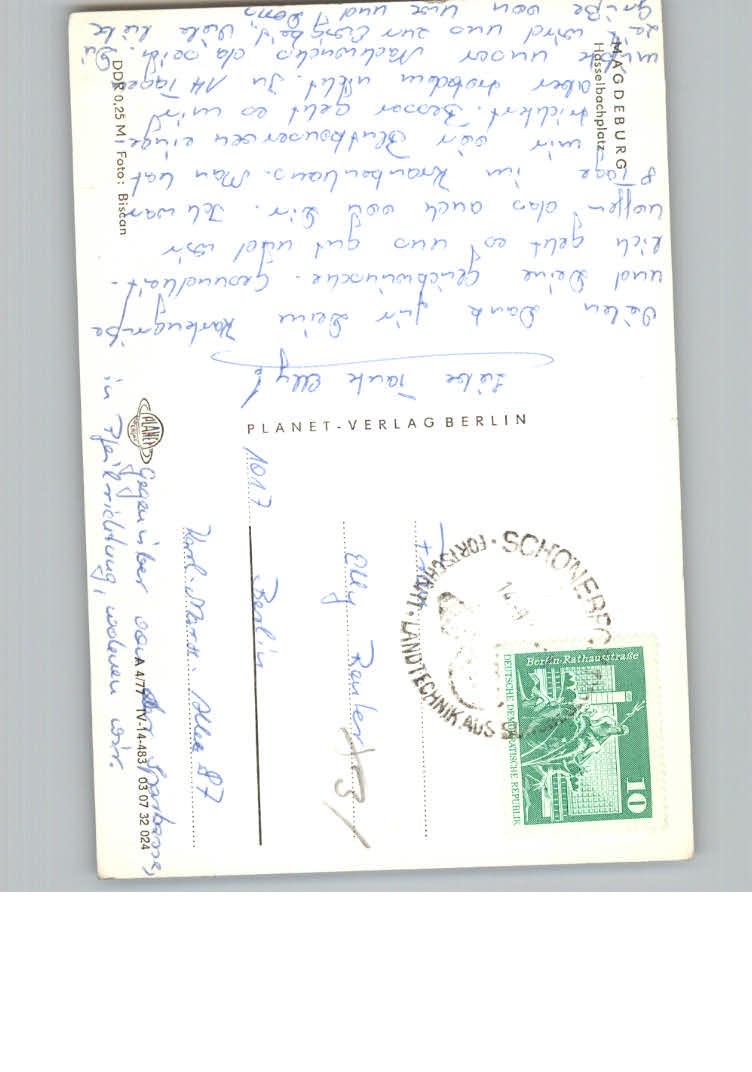 MAGDEBURG
Hasselbachplatz
Liebe Tante Elly!
Vielen Dank für Deine Kartengrüße
und Deine Glückwünsche. Gesundheit-
lich geht es uns gut und wir
hoffen das auch von Dir. Ich war
8 Tage im Krankenhaus. Man hat
mir vier Blutkonserven einge
trichtert. Besser geht es mir
aber trotzdem nicht. In 14 Tagen
müßte unser Nachwuchs da sein. Die
Zeit wird uns zur
Viele liebe
Grüße von Uve und
DDR 0,25 M   Foto: Biscan
PLANET-VERLAG BERLIN
PLANET
A 4/77   IV-14-483   03 07 32 024
Gegenüber von der Sparkasse,
in Pfeilrichtung, wohnen wir.
Elly Reuter
Berlin
1017
Karl-Marx-Allee 87
SCHÖNEBECK
FORTSCHRITT-LANDTECHNIK AUS
Berlin-Rathausstraße
DEUTSCHE DEMOKRATISCHE REPUBLIK
10